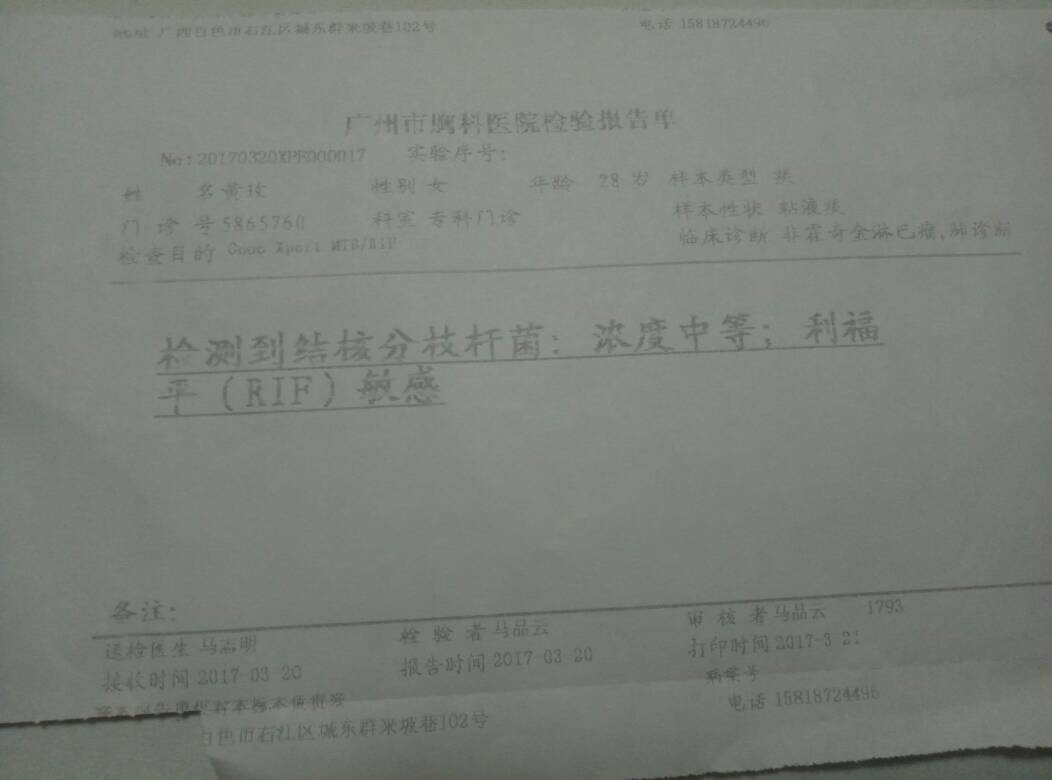 地址 广西百色市右江区城东群来坡巷102号 电话 15818724496
广州市胸科医院检验报告单
No:20170320XPE000017 实验序号:
姓 名 黄玫 性别 女 年龄 28 岁 样本类型 痰
门 诊 号 5865760 科室 专科门诊 样本性状 粘液痰
检查目的 MTB/RIF 临床诊断 非霍奇金淋巴瘤,肺诊断
检测到结核分枝杆菌: 浓度中等; 利福
平(RIF)敏感
备注:
送检医生 检 验 者 马品云 审 核 者 马品云 1793
接收时间 2017-03-20 报告时间 2017-03-20 打印时间 2017-3-21
病案号
本报告单仅对本标本负责
百色市右江区城东群来坡巷102号 电话 15818724496